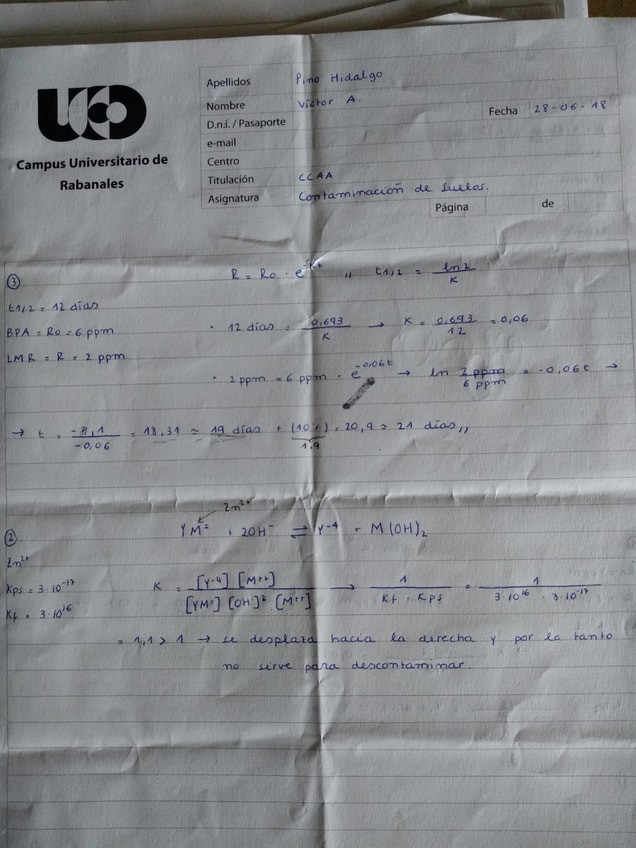 UCO
Campus Universitario de
Rabanales
Apellidos Pino Hidalgo
Nombre Víctor A.
Fecha 28-06-18
D.n.i. / Pasaporte
e-mail
Centro
Titulación CCAA
Asignatura Contaminación de suelos.
Página de
③ R = Ro · e^-Kt ,, t1/2 = ln 2 / K
t1/2 = 12 días
BPA = Ro = 6 ppm · 12 días = 0,693 / K → K = 0,693 / 12 = 0,06
LMR = R = 2 ppm
· 2 ppm = 6 ppm · e^-0,06t → ln 2 ppm / 6 ppm = -0,06t →
→ t = -1,1 / -0,06 = 18,31 ≃ 19 días + (10%) = 20,9 ≃ 21 días,,
1.9
Zn2+
② YM= + 2OH- ⇌ Y-4 + M(OH)2
Zn2+
Kps = 3·10^-17 K = [Y-4] [M++] / [YM=] [OH-]2 [M++] → 1 / Kf · Kps = 1 / 3·10^16 · 3·10^-17
Kf = 3·10^16
= 1,1 > 1 → se desplaza hacia la derecha y por lo tanto
no sirve para descontaminar.